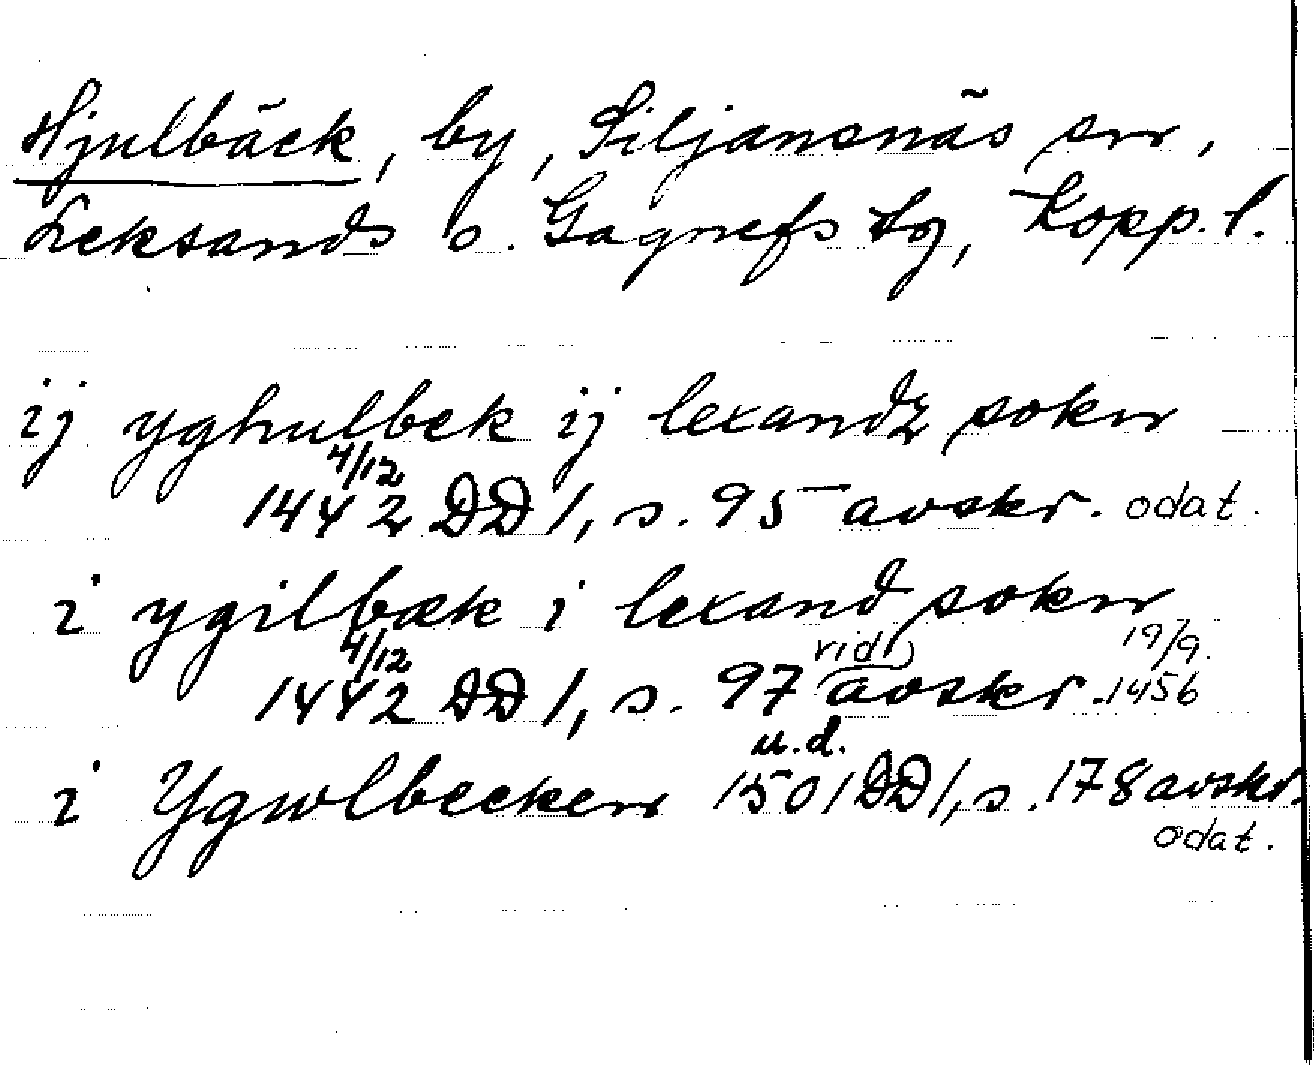 Hjulbäck, by, Siljansnäs sn,
Leksands o. Gagnefs tg, Kopp. l.
ij yghulbek ij lexandz sokn
4/12
1442 DD 1, s. 95 avskr. odat.
i ygilbæk i lexand sokn
4/12 vid. 19/9.
1442 DD 1, s. 97 avskr. 1456
u.d.
i Ygwlbecken 1501 DD 1, s. 178 avskr.
odat.